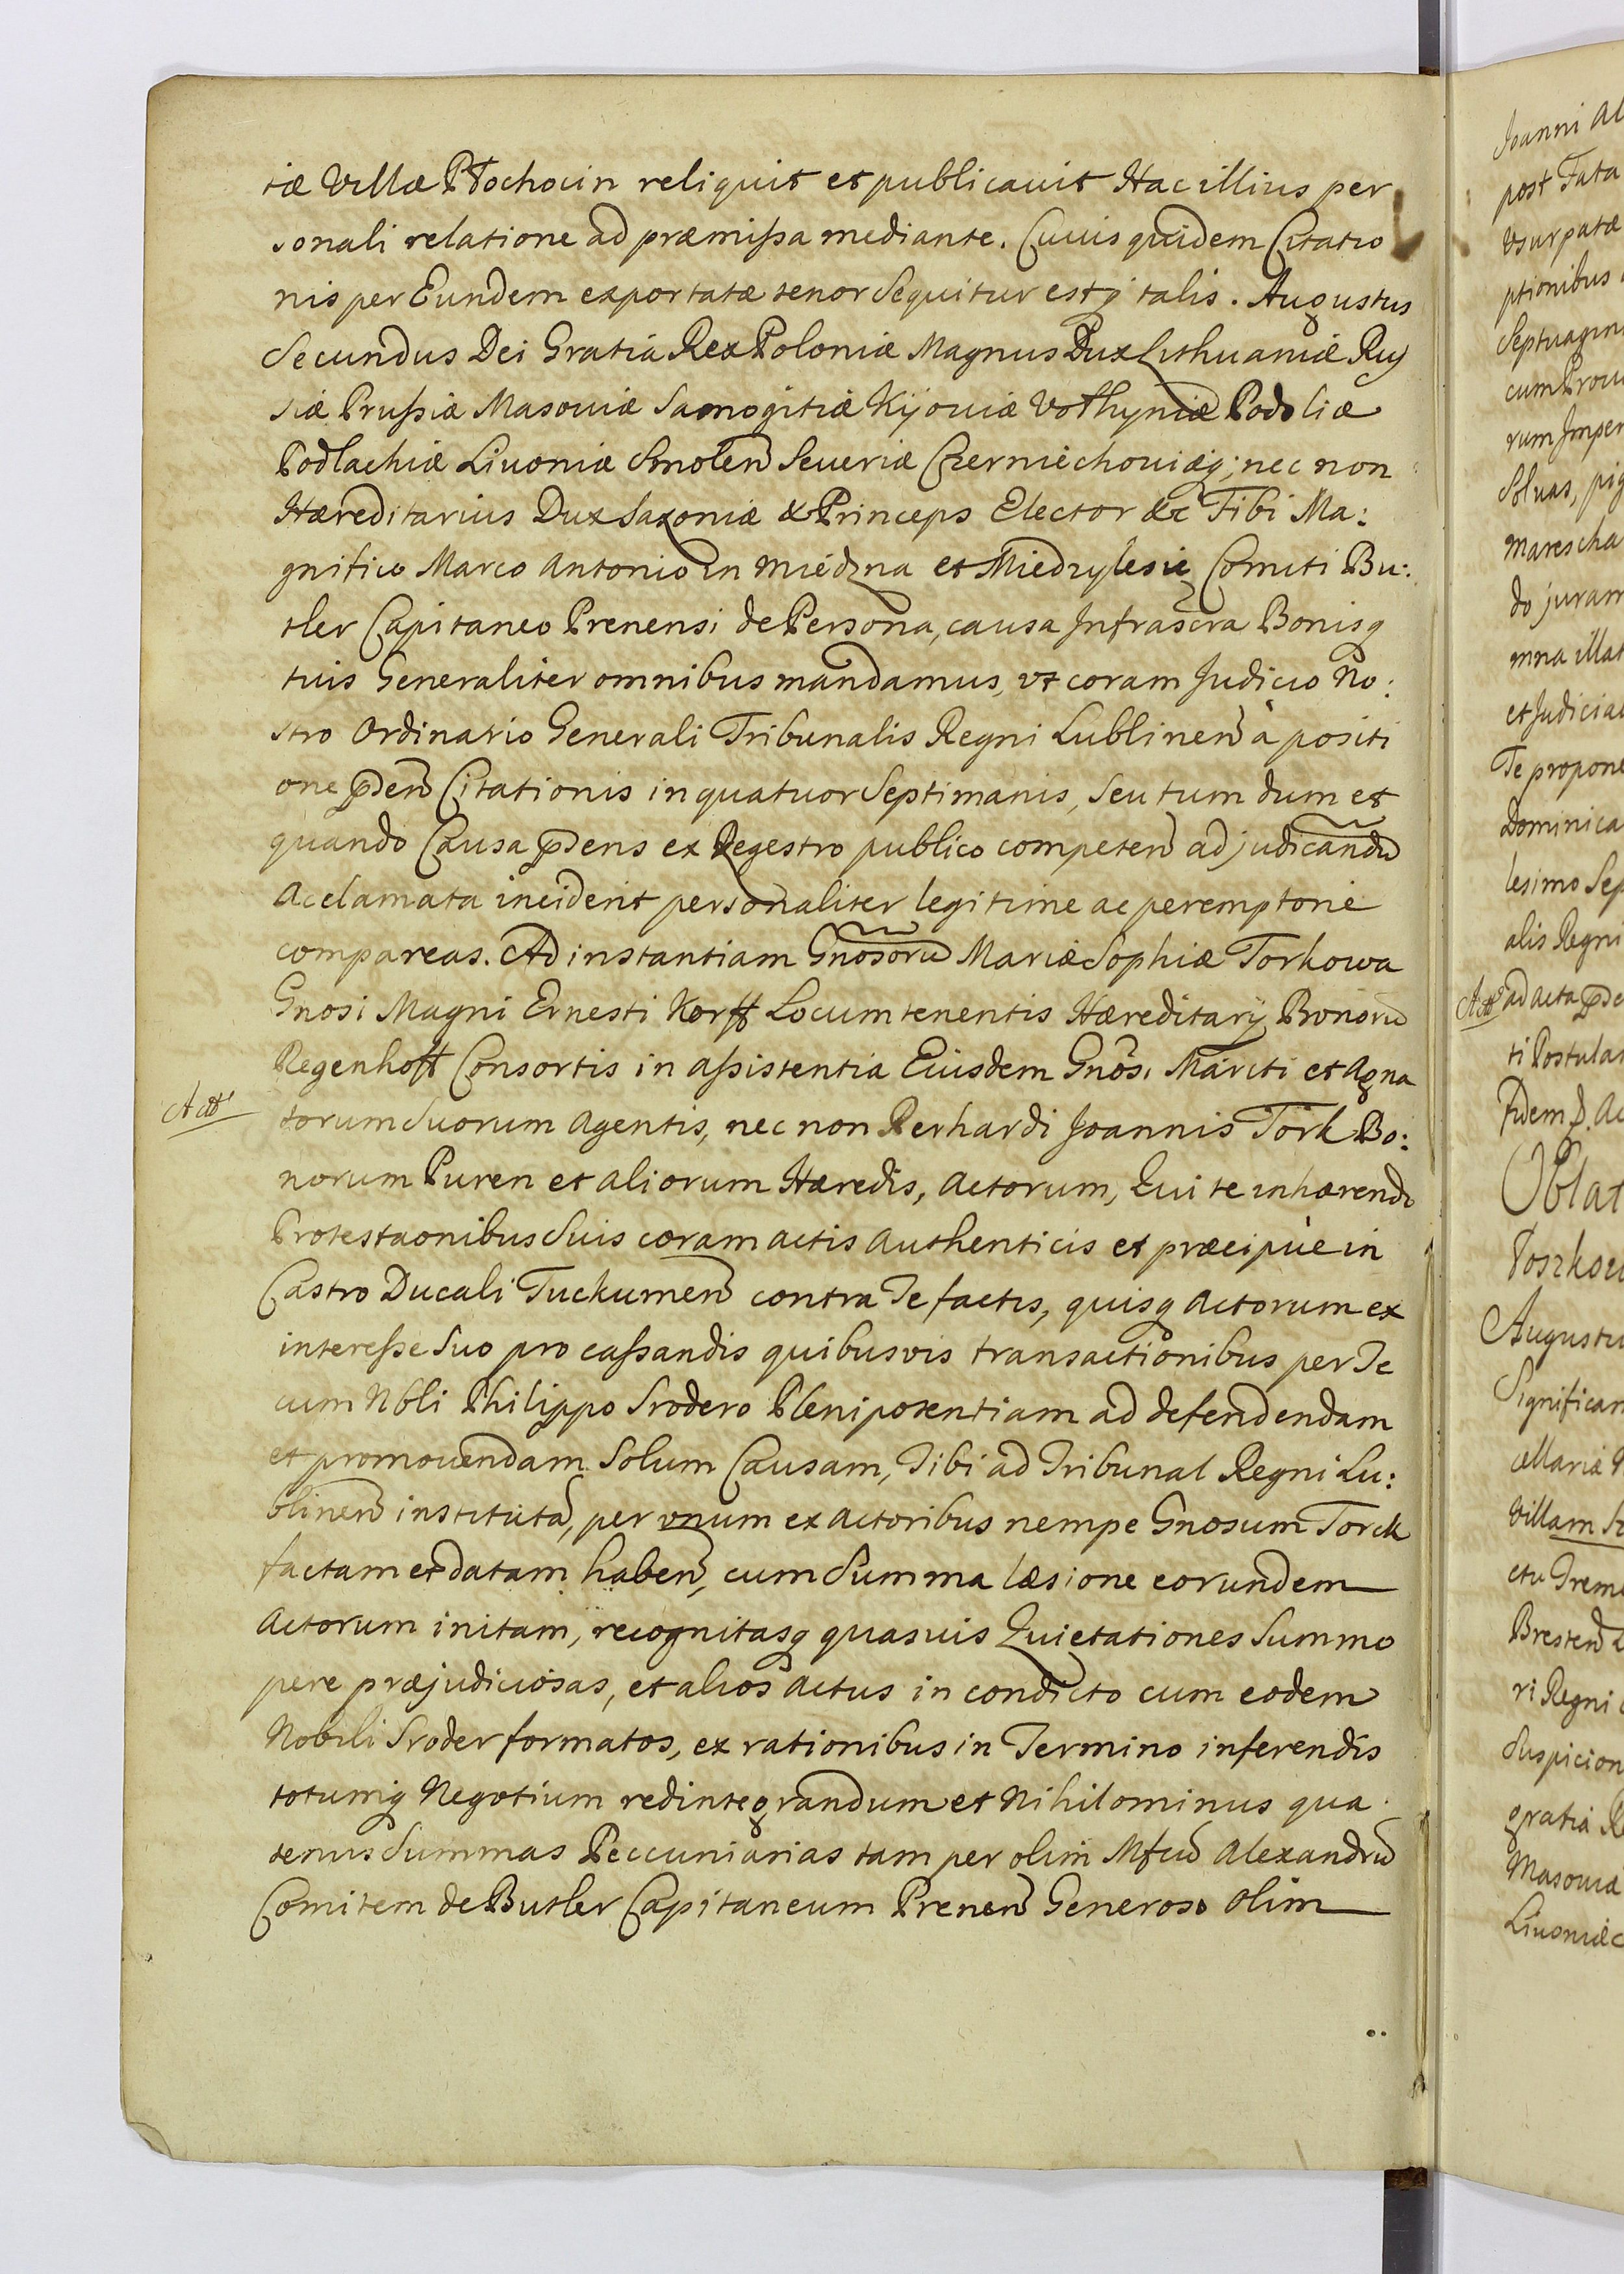 tiæ Villæ Płochocin reliquit et publicavit Hac illius per
sonali relatione ad præmissa mediante. Cuius quidem Citatio
nis per Eundem exportatæ tenor Sequitur estq talis. Augustus
Secundus Dei Gratia Rex Poloniæ Magnus Dux Lithuaniæ Rus
siæ Prussiæ Masoviæ Samogitiæ Kijoviæ Vołhyniæ Podoliæ
Podlachiæ Livoniæ Smolen Severiæ Czerniechoviæq; nec non
Hæreditarius Dux Saxoniæ & Princeps Elector &c Tibi Ma:
gnifico Marco Antonio in Miedzna et Miedzylesie Comiti Bu:
tler Capitaneo Prenensi de Persona, causa Infrascra Bonisq
tuis Generaliter omnibus mandamus, vt coram Judicio No:
stro Ordinario Generali Tribunalis Regni Lublinen à positi
one pden Citationis in quatuor Septimanis, seu tum dum et
quando Causa pdens ex Regestro publico competen ad judicandu
Acclamata inciderit personaliter legitime ac peremptorie
compareas. Ad instantiam Gnosoru Mariæ Sophiæ Torkowa
Gnosi Magni Ernesti Korff Locumtenentis Hæreditarij Bonoru
Regenhoff Consortis in assistentia Eiusdem Gnosi Mariti et Agna
Act
torum Suorum Agentis, nec non Rerhardi Joannis Tork Bo:
norum Puren et aliorum Hæredis, Actorum, Qui te inhærendo
Protestaonibus Suis coram actis Authenticis et præcipue in
Castro Ducali Tuckumen contra Te factis, quisq Actorum ex
interesse Suo pro cassandis quibusvis transactionibus per Te
cum Nbli Philippo Srodero Plenipotentiam ad defendendam
et promovendam Solum Causam, Tibi ad Tribunal Regni Lu:
blinen institutá, per vnum ex Actoribus nempe Gnosum Torck
factam et datam haben, cum Summa læsione eorundem
Actorum initam, recognitasq quasvis Quietationes Summo
pere præjudiciosas, et alios Actus in condicto cum eodem
Nobili Sroder formatos, ex rationibus in Termino inferendis
totumq Negotium redintegrandum et Nihilominus qua
tenus Summas Peccuniarias tam per olim Mfcu Alexandru
Comitem de Butler Capitaneum Prenen Generoso olim
Joanni Al
post Fata
vsurpatæ
ptionibus
Septuagin
cum Prov
rum Imper
Solvas, pig
Marescha
do juram
mna illat
et Judicia
Te propone
Dominica
lesimo Sep
alis Regni
Act ad acta pde
ti Postula
Oblat
Augustu
Significam
cellariæ
Villam
ctu Treme
Bresten
ri Regni
Suspicion
gratia R
Masoviæ
Livoniæ